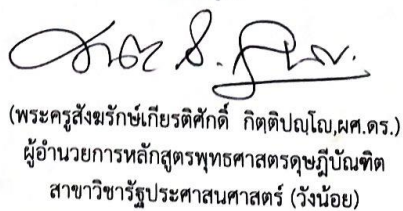 (พระครูสังฆรักษ์เกียรติศักดิ์ กิตฺติปญฺโญ,ผศ.ดร.)
ผู้อำนวยการหลักสูตรพุทธศาสตรดุษฎีบัณฑิต
สาขาวิชารัฐประศาสนศาสตร์ (วังน้อย)